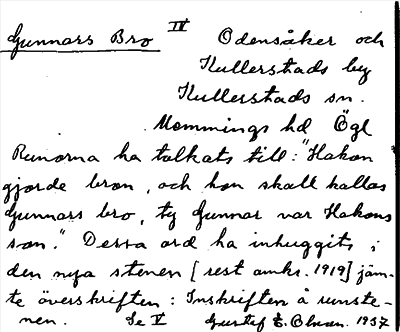 Gunnars Bro IV Odensåker och
Kullerstads by
Kullerstads sn.
Memmings hd Ögl
Runorna ha tolkats till: "Hakon
gjorde bron, och hon skall kallas
Gunnars bro, ty Gunnar var Hakons
son." Dessa ord ha inhuggits i
den nya stenen [rest omkr. 1919] jäm-
te överskriften: Inskriften å runste-
nen. Se V Gustef E. Olsson. 1937